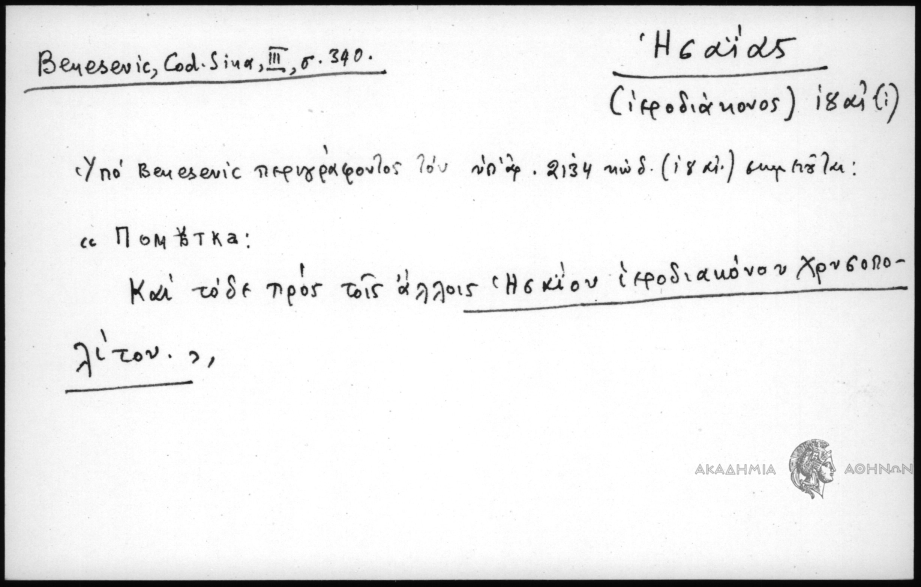 Benesevic, Cod. Sina, III, σ. 340.
Ἠσαΐας
(ἱεροδιάκονος) ιη αἰ (;)
Ὑπό Benesevic περιγράφοντος τόν ὑπ' ἀρ. 2134 κώδ. (ιη αἰ.) σημειοῦται:
« Помѣтка:
Καί τόδε πρός τοῖς ἄλλοις Ἠσαΐου ἱεροδιακόνου Χρυσοπο-
λίτου. »,
ΑΚΑΔΗΜΙΑ ΑΘΗΝΩΝ